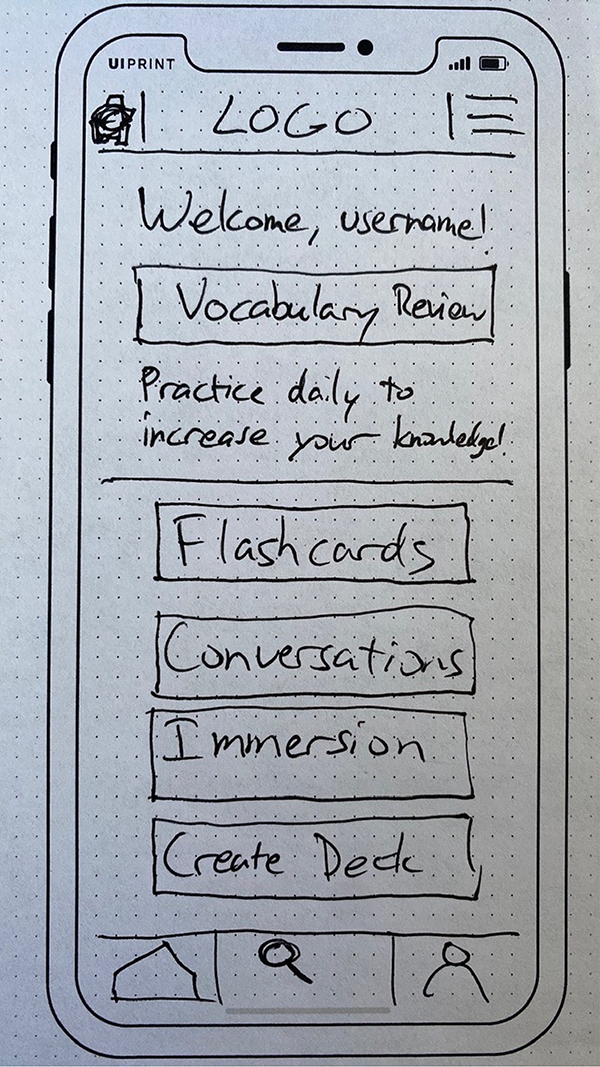 UIPRINT
LOGO
Welcome, username!
Vocabulary Review
Practice daily to
increase your knowledge!
Flashcards
Conversations
Immersion
Create Deck